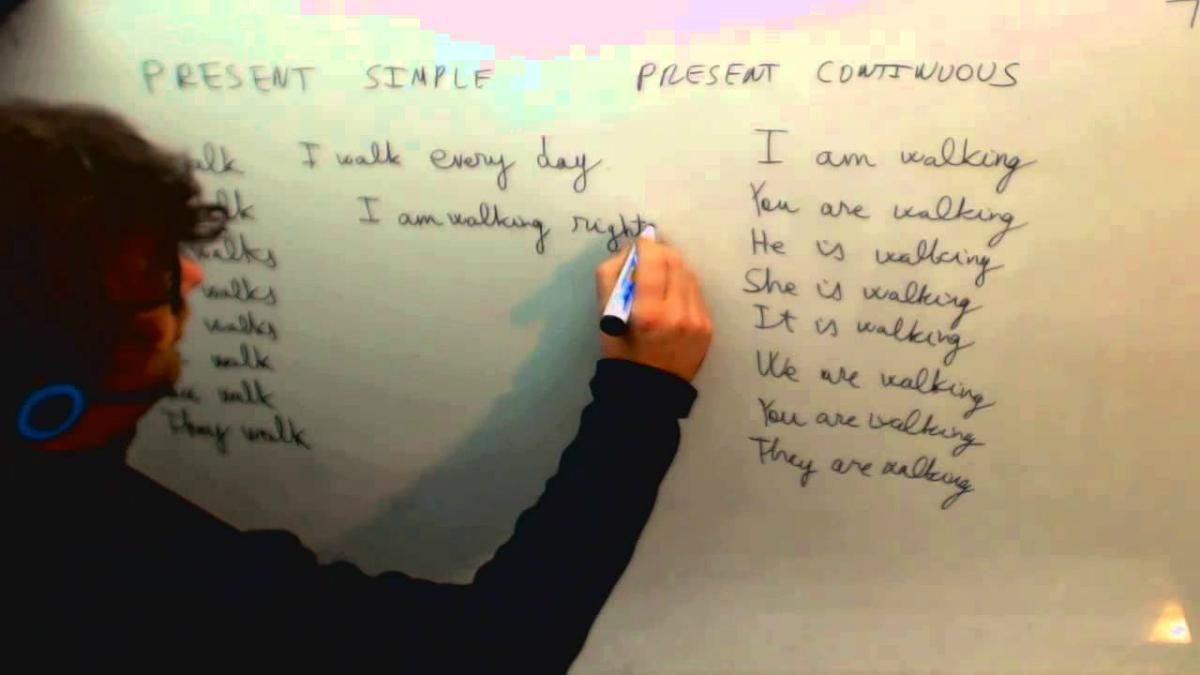 PRESENT SIMPLE
walk
walk
walks
walks
walks
walk
walk
They walk
I walk every day.
I am walking right
PRESENT CONTINUOUS
I am walking
You are walking
He is walking
She is walking
It is walking
We are walking
You are walking
They are walking